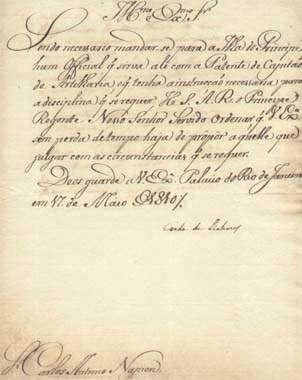 Illmo. e Exmo. Sr.
Sendo necessario mandar-se para a Ilha do Principe
hum Official q̃ sirva ate com a Patente de Capitão
de Artilharia eq̃ tenha a instrucção necessaria para
a disciplina q̃ se requer: He S. A. R. o Principe
Regente N. Nosso Senhor Servido Ordenar q̃ V. Exa.
sem perda de tempo haja de propôr aquelle que
julgar com as circunstancias q̃ se requer.
Deos guarde a V. Exa. Palacio do Rio de Janeiro
em 17. de Maio de 1810 /.
Conde de Linhares
Sr. Carlos Antonio Napion.